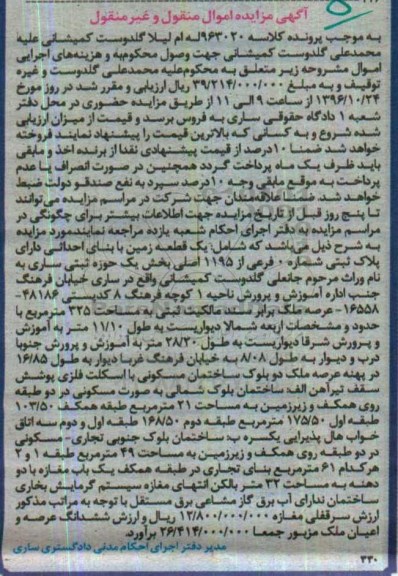 آگهی مزایده اموال منقول و غیر منقول
به موجب پرونده کلاسه 963020له ام لیلا گلدوست کمیشانی علیه
محمدعلی گلدوست کمیشانی جهت وصول محکوم‌به و هزینه‌های اجرایی
اموال مشروحه زیر متعلق به محکوم‌علیه محمدعلی گلدوست و غیره
توقیف و به مبلغ 39/214/000/000 ریال ارزیابی و مقرر شد در روز مورخ
1396/10/24 از ساعت 9 الی 11 از طریق مزایده حضوری در محل دفتر
شعبه 1 دادگاه حقوقی ساری به فروش برسد و قیمت از میزان ارزیابی
شده شروع و به کسانی که بالاترین قیمت را پیشنهاد نمایند فروخته
خواهد شد ضمنا 10درصد از قیمت پیشنهادی نقدا از برنده اخذ و مابقی
باید ظرف یک ماه پرداخت گردد همچنین در صورت انصراف یا عدم
پرداخت به موقع مابقی وجه 10درصد سپرده به نفع صندوق دولت ضبط
خواهد شد. ضمنا علاقه‌مندان جهت شرکت در مراسم مزایده می‌توانند
تا پنج روز قبل از تاریخ مزایده جهت اطلاعات بیشتر برای چگونگی در
مراسم مزایده به دفتر اجرای احکام شعبه یازده مراجعه نمایندمورد مزایده
به شرح ذیل می‌باشند که شامل: یک قطعه زمین با بنای احداثی دارای
پلاک ثبتی شماره 10 فرعی از 1195 اصلی بخش یک حوزه ثبتی ساری به
نام وراث مرحوم جانعلی گلدوست کمیشانی واقع در ساری خیابان فرهنگ
جنب اداره آموزش و پرورش ناحیه 1 کوچه فرهنگ 8 کدپستی 48186-
16558- عرصه ملک برابر سند مالکیت ثبتی به مساحت 325 مترمربع با
حدود و مشخصات اربعه شمالا دیواریست به طول 11/10 متر به آموزش
و پرورش شرقا دیواریست به طول 28/20 متر به آموزش و پرورش جنوبا
درب و دیوار به طول 8/08 به خیابان فرهنگ غربا دیوار به طول 16/85
در پهنه عرصه ملک دو بلوک ساختمان مسکونی با اسکلت فلزی پوشش
سقف تیرآهن الف: ساختمان بلوک شمالی به صورت مسکونی در دو طبقه
روی همکف و زیرزمین به مساحت 21 مترمربع طبقه همکف 103/50
طبقه اول 175/50 مترمربع طبقه دوم 168/50 طبقه اول و دوم سه اتاق
خواب هال پذیرایی یکسره ب: ساختمان بلوک جنوبی تجاری- مسکونی
در دو طبقه روی همکف و زیرزمین به مساحت 49 مترمربع طبقه 1 و 2
هرکدام 61 مترمربع بنای تجاری در طبقه همکف یک باب مغازه با دو
دهنه به مساحت 32 متر بالکن انتهای مغازه سیستم گرمایش بخاری
ساختمان ندارای آب برق گاز مشاعی برق مستقل با توجه به مراتب مذکور
ارزش سرقفلی مغازه 12/800/000/000 ریال و ارزش ششدانگ عرصه و
اعیان ملک مزبور جمعا 26/414/000/000 برآورد.
مدیر دفتر اجرای احکام مدنی دادگستری ساری
330